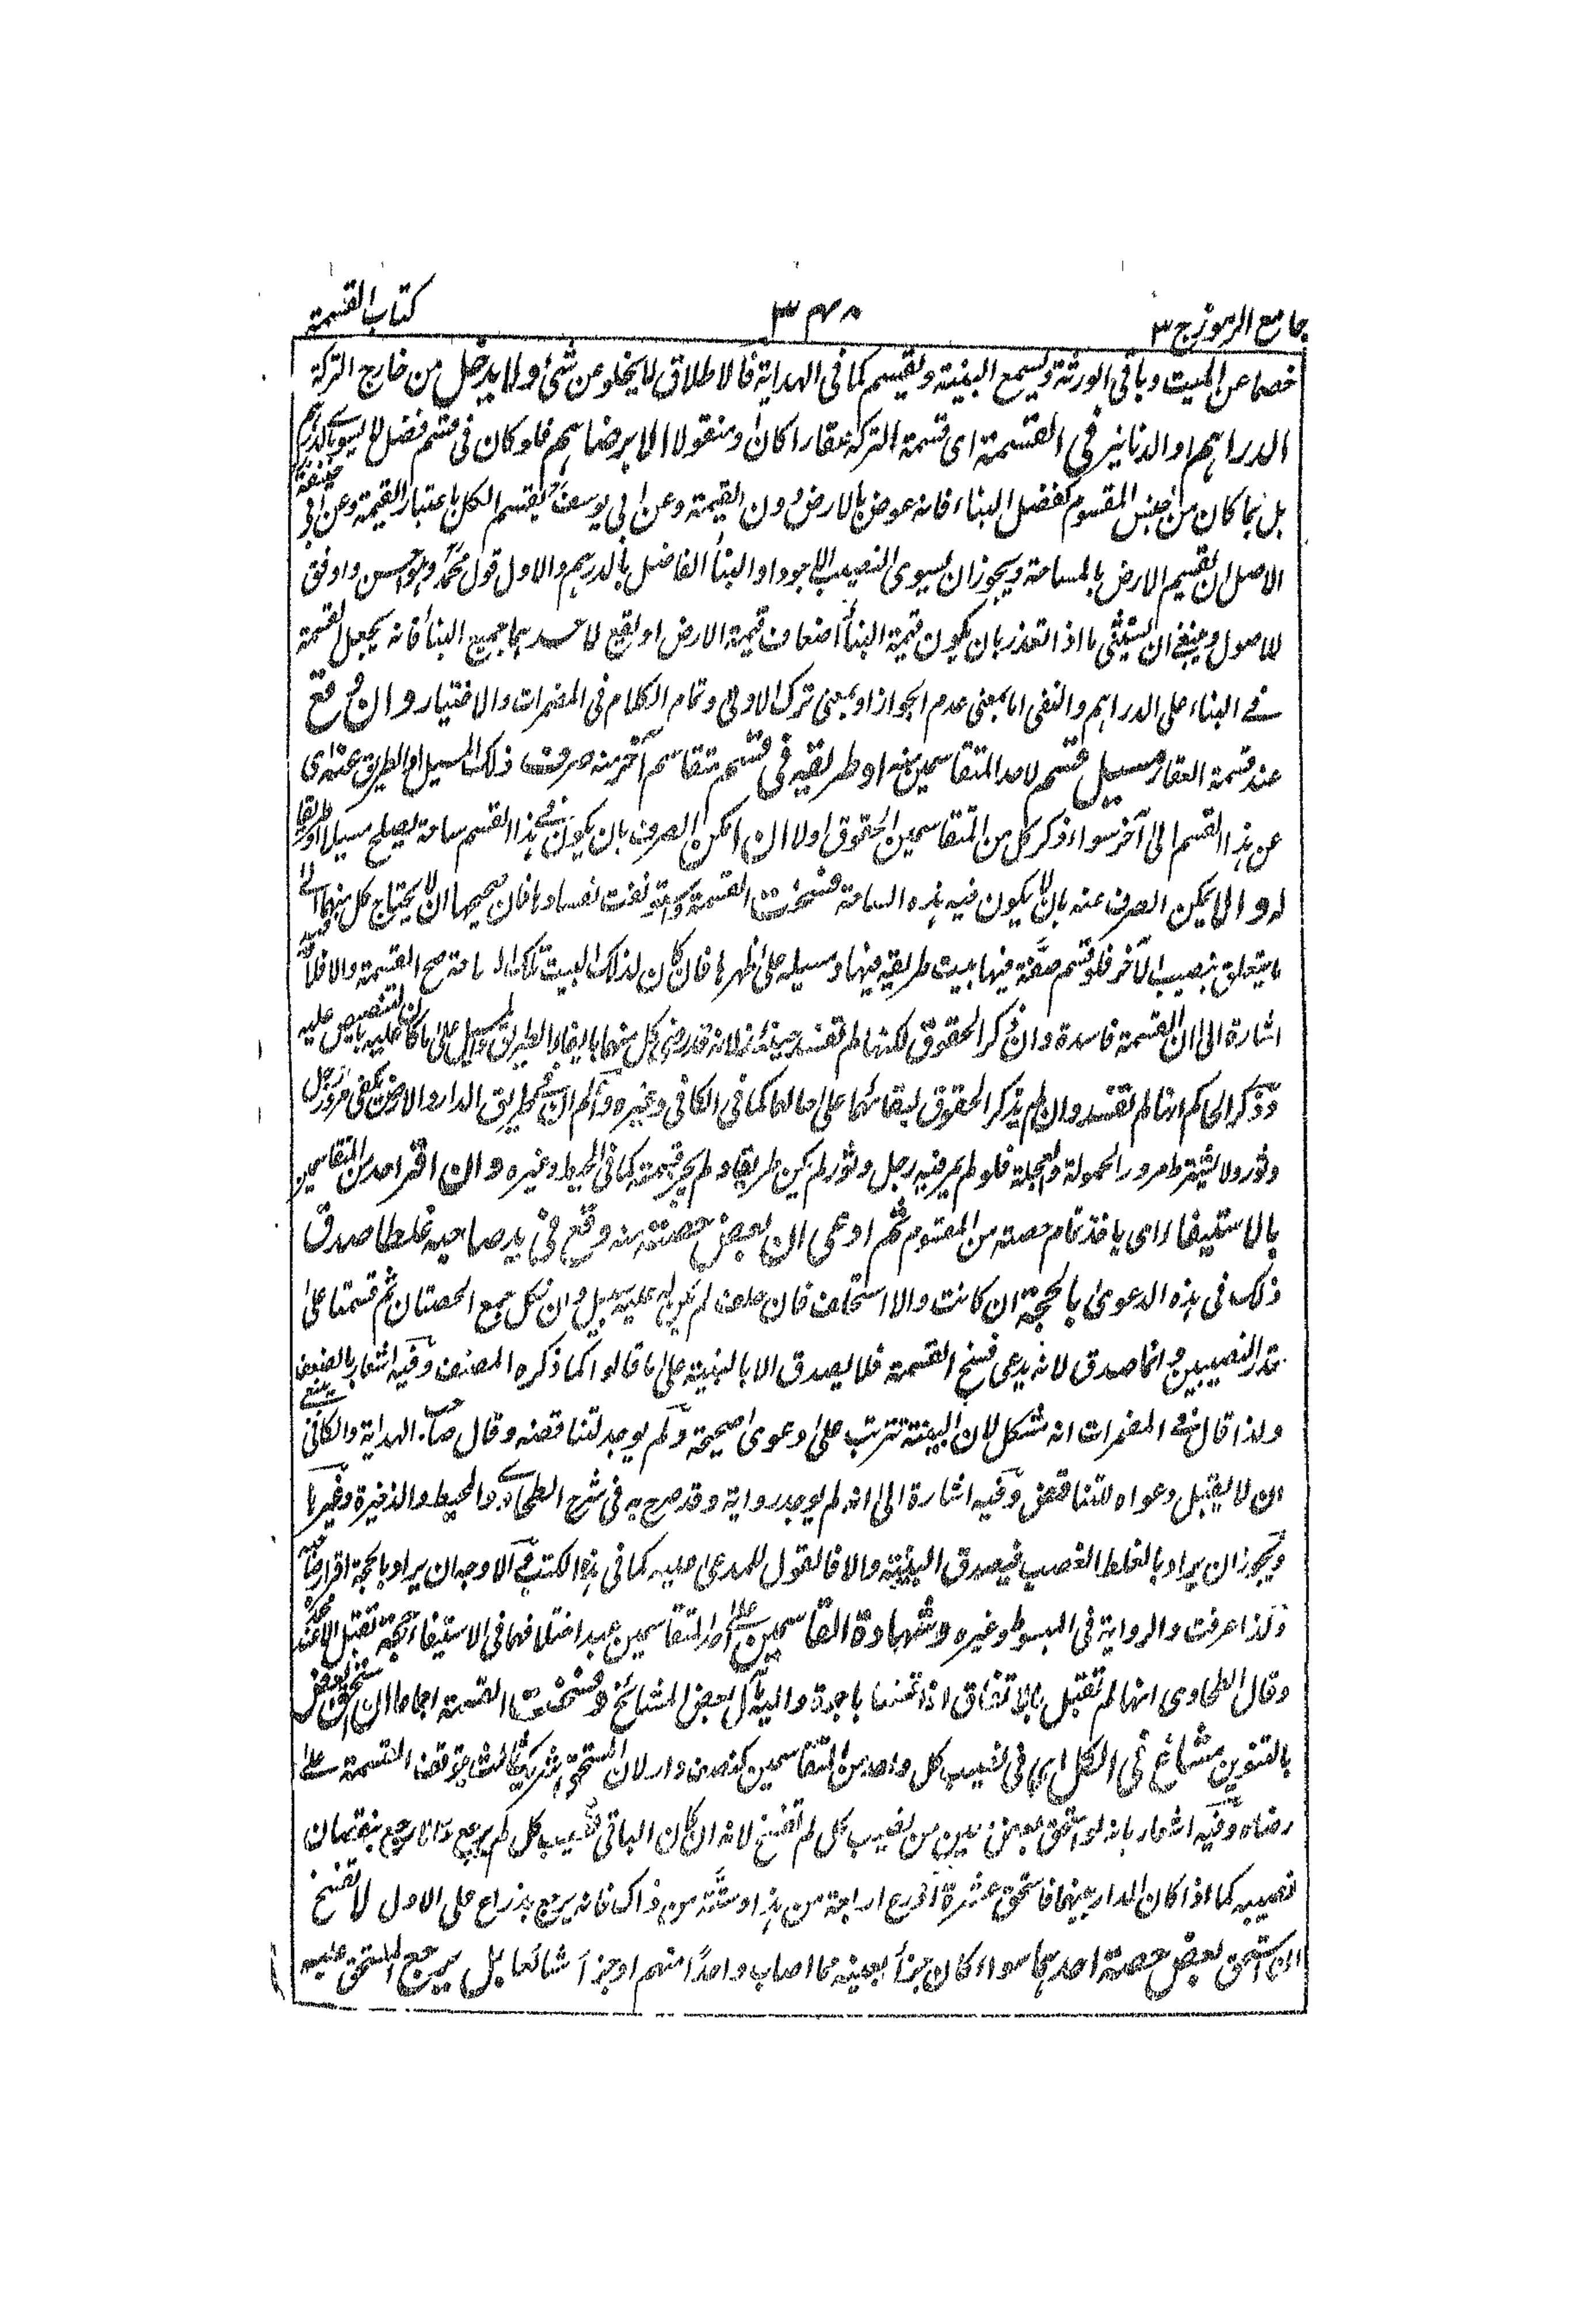 جامع الرموز ج ٣
٣٤٨
كتاب القسمة
خصما عن الميت وباقى الورثة ويسمع البينة ويقسم كما فى الهداية فالاطلاق لا يخلو عن شئ ولا يدخل من خارج التركة
الدراهم او الدنانير فى القسمة اى قسمة التركة عقارا كان او منقولا الا برضاهم فلو كان فى قسم فضل لا يسوى بالدراهم
بل بما كان من جنس المقسوم كفضل البناء فانه عوض بالارض دون القيمة وعن ابى يوسف يقسم الكل باعتبار القيمة وعن ابى حنيفة
الاصل ان يقسم الارض بالمساحة ويجوز ان يسوى النصيب الاجود او البناء الفاضل بالدرهم والاول قول محمد وهو احسن واوفق
للاصول وينبغى ان يستثنى ما اذا تعذر بان يكون قيمة البناء اضعاف قيمة الارض او يقع لاحدهما جميع البناء فانه يجعل القسمة
فى البناء على الدراهم والنفى اما بمعنى عدم الجواز او بمعنى ترك الاولى وتمام الكلام فى المضمرات والاختيار وان وقع
عند قسمة العقار مسيل قسم لاحد المتقاسمين منه او طريقه فى قسم متقاسم آخر منه صرف ذلك المسيل او الطريق عنه اى
عن هذا القسم الى آخر سواء ذكر كل من المتقاسمين الحقوق اولا ان امكن الصرف بان يكون فى هذا القسم ساحة يصلح مسيلا او طريقا
له والا يمكن الصرف عنه بان لا يكون فيه هذه الساحة فسخت القسمة لفسادها فان صحيحها ان لا يحتاج كل منهما الى
ما يتعلق بنصيب الآخر فلو قسم صفة فيها بيت طريقه فيها ومسيله على ظهرها فان كان لذلك البيت تلك الساحة صح القسمة والا فلا وفيه
اشارة الى ان القسمة فاسدة وان ذكر الحقوق لكنها لم تفسد حينئذ لانه قد رضى كل منهما بابقاء الطريق والمسيل على ما كان عليه بالتنصيص عليه
وذكر الحاكم انها لم تفسد وان لم يذكر الحقوق لبقائهما على حالهما كما فى الكافى وغيره واعلم ان فى طريق الدار والارض يكفى مرور رجل
وثور ولا يشترط مرور الحمولة والعجلة فلو لم يمر فيه رجل وثور لم يكن طريقا ولم يجز قسمته كما فى المحيط وغيره وان اقر احد من المتقاسمين
بالاستيفاء اى باخذ تمام حصته من المقسوم ثم ادعى ان بعض حصته منه وقع فى يد صاحبه غلطا صدق
ذلك فى هذه الدعوى بالحجة ان كانت والا استحلف فان حلف لم يكن له عليه سبيل وان نكل جمع الحصتان ثم قسمتا على
قدر النصيبين وانما صدق لانه يدعى فسخ القسمة فلا يصدق الا بالبينة على ما قالوا كما ذكره المصنف وفيه اشعار بالضعف
ولذا قال فى المضمرات انه مشكل لان البينة تترتب على دعوى صحيحة ولم يوجد لتناقضه وقال صاحب الهداية والكافى ينبغى
ان لا يقبل دعواه للتناقض وفيه اشارة الى انه لم يوجد رواية وقد صرح به فى شرح الطحاوى والمحيط والذخيرة وغيرها
ويجوز ان يراد بالغلط الغصب فيصدق البينة والا فالقول للمدعى عليه كما فى هذه الكتب والاوجه ان يراد بالحجة اقرار صاحبه
ولذا عرفت والرواية فى المبسوط وغيره وشهادة القاسمين على احد المتقاسمين عند اختلافهما فى الاستيفاء حجة تقبل الا عند محمد
وقال الطحاوى انها لم تقبل بالاتفاق اذا قسما باجرة واليه مال بعض المشائخ وفسخت القسمة اجماعا ان استحق بعض
بالتنوين مشاع فى الكل اى فى نصيب كل واحد من المتقاسمين كنصف دار لان المستحق شريك ثالث توقف القسمة على
رضاه وفيه اشعار بانه لو استحق بعض معين من نصيب كل لم تفسخ لانه ان كان الباقى نصيب كل لم يرجع والا رجع بنقصان
نصيبه كما اذا كان الدار بينهما فاستحق عشرة اذرع اربعة من هذا وستة من ذاك فانه يرجع بذراع على الاول لا تفسخ
ان استحق بعض حصة احدهما سواء كان جزأ بعينه مما اصاب واحدًا منهم او جزأ شائعا بل يرجع المستحق عليه